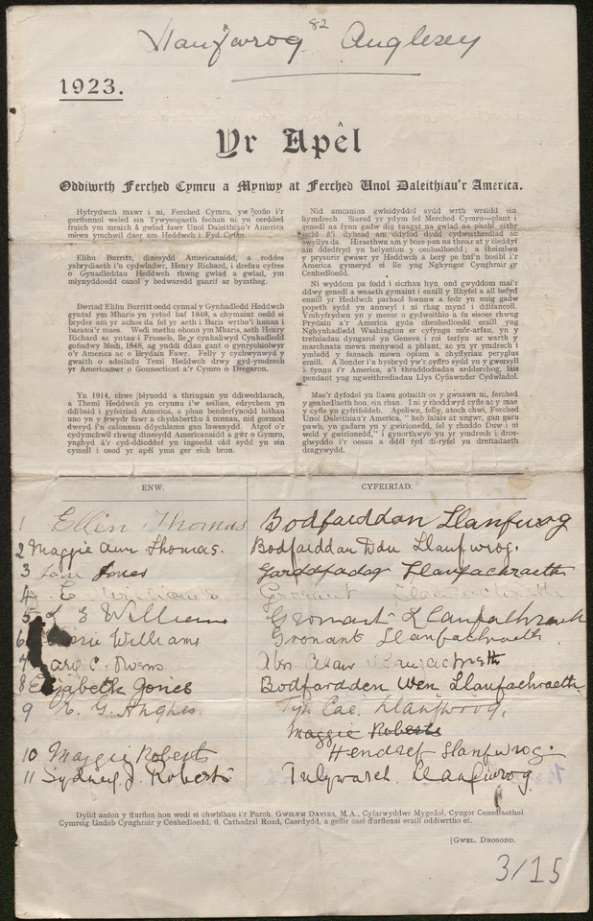 82
Llanfwrog Anglesey
1923.
Yr Apêl
Oddiwrth Ferched Cymru a Mynwy at Ferched Unol Daleithiau'r America.
Hyfrydwch mawr i ni, Ferched Cymru, yw cofio i'r
gorffennol weled ein Tywysogaeth fechan ni yn cerdded
fraich ym mraich â gwlad fawr Unol Daleithiau'r America
mewn ymchwil daer am Heddwch i Fyd Cyfan.
Elihu Burritt, dinesydd Americanaidd, a roddes
ysbrydiaeth i'n cydwladwr, Henry Richard, i drefnu cyfres
o Gynadleddau Heddwch rhwng gwlad a gwlad, ym
mlynyddoedd canol y bedwaredd ganrif ar bymtheg.
Bwriad Elihu Burritt oedd cynnal y Gynhadledd Heddwch
gyntaf ym Mharis yn ystod haf 1848, a chymaint oedd ei
bryder am yr achos da fel yr aeth i Baris wrtho'i hunan i
baratoi'r maes. Wedi methu ohono ym Mharis, aeth Henry
Richard ac yntau i Frussels, lle y cynhaliwyd Cynhadledd
gofiadwy Medi, 1848, ag ynddi ddau cant o gynrychiolwyr
o'r America ac o Brydain Fawr. Felly y cychwynwyd y
gwaith o adeiladu Teml Heddwch drwy gyd-ymdrech yr
Americanwr o Gonnecticut a'r Cymro o Dregaron.
Yn 1914, chwe blynedd a thrigain yn ddiweddarach,
a Theml Heddwch yn crynnu i'w seilian, edrychem yn
ddifrad i gyfeiriad America, a phan benderfynodd hithau
uno yn y frwydr fawr a chydaberthu â ninnau, nid gormod
dweyd i'n calonnau ddychlamu gan lawenydd. Atgof o'r
cydymchwil rhwng dinesydd Americanaidd a gŵr o Gymro,
ynghyd â'r cyd-ddioddef yn ingoedd câd sydd yn ein
cymell i osod yr apêl yma ger eich bron.
Nid amcanion gwleidyddol sydd wrth wraidd ein
hymdrech. Siarad yr ydym fel Merched Cymru—plant i
genedl na fynn gadw dig tuagat na gwlad na phobl eithr
sydd â'i dyhead am ddyfod dydd cydweithrediad ac
ewyllys da. Hiraethwn am y bore pan na throir at y cleddyf
am ddedfryd yn helyntion y cenhedloedd; a theimlwn
y prysurir gwawr yr Heddwch a bery pe bai'n bosibl i'r
America gymeryd ei lle yng Nghyngor Cynghrair y
Cenhedloedd.
Ni wyddom pa fodd i sicrhau hyn, ond gwyddom mai'r
ddwy genedl a wnaeth gymaint i ennill y Rhyfel a all hefyd
ennill yr Heddwch parhaol hwnnw a fedr yn unig gadw
popeth sydd yn annwyl i ni rhag mynd i ddifancoll.
Ymhyfrydwn yn y mesur o gydweithio a fu eisoes rhwng
Prydain a'r America gyda chenhedloedd eraill yng
Nghynhadledd Washington er cyfyngu môr-arfau, yn y
trefniadau dyngarol yn Geneva i roi terfyn ar warth y
marchnata mewn menywod a phlant, ac yn yr ymdrech i
ymledd y fasnach mewn opium a chyffyriau peryglus
eraill. A llonder i'n hysbryd yw'r cyffro sydd yn y gwersyll
i fynnu i'r America, a'i thraddodiadau ardderchog, fais
pendant yng ngweithrediadau Llys Cyfiawnder Cydwladol.
Mae'r dyfodol yn llawn gobaith os y gwnawn ni, ferched
y genhedlaeth hon, ein rhan. I ni y rhoddwyd cyfle ac y mae
y cyfle yn gyfrifoldeb. Apeliwn, felly, atoch chwi, Ferched
Unol Daleithiau'r America, "heb falais at ungwr, gan garu
pawb, yn gadarn yn y gwirionedd, fel y rhoddo Duw i ni
weld y gwirionedd," i gynorthwyo yn yr ymdrech i dros-
glwyddo i'r oesau a ddêl fyd di-ryfel yn dreftadaeth
dragywydd.
ENW. CYFEIRIAD.
1 Ellen Thomas Bodfarddan Llanfwrog
2 Maggie Ann Thomas. Bodfarddan Ddu Llanfwrog.
3 Jones Garddfadog Llanfachraeth
4 E Williams Gronant Llanfachraeth
5 E Williams Gronant Llanfachraeth
6 Williams Gronant Llanfachraeth
7 C. Owens Llanfachraeth
8 Elizabeth Jones Bodfardden Wen Llanfachraeth
9 G. Hughes. Ty'n Cae, Llanfwrog,
Maggie Roberts
10 Maggie Roberts Hendref Llanfwrog.
11 Sydney J. Roberts Llanfwrog
Dylid anfon y ffurflen hon wedi ei chwblhau i'r Parch. GWILYM DAVIES, M.A., Cyfarwyddwr Mygedol, Cyngor Cenedlaethol
Cymreig Undeb Cynghrair y Cenhedloedd, 6, Cathedral Road, Caerdydd, a gellir cael ffurflenni eraill oddiwrtho ef.
[GWEL. DROSODD.
3/15